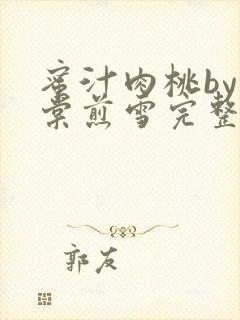 蜜汁肉桃by
棠煎雪完整
郭友